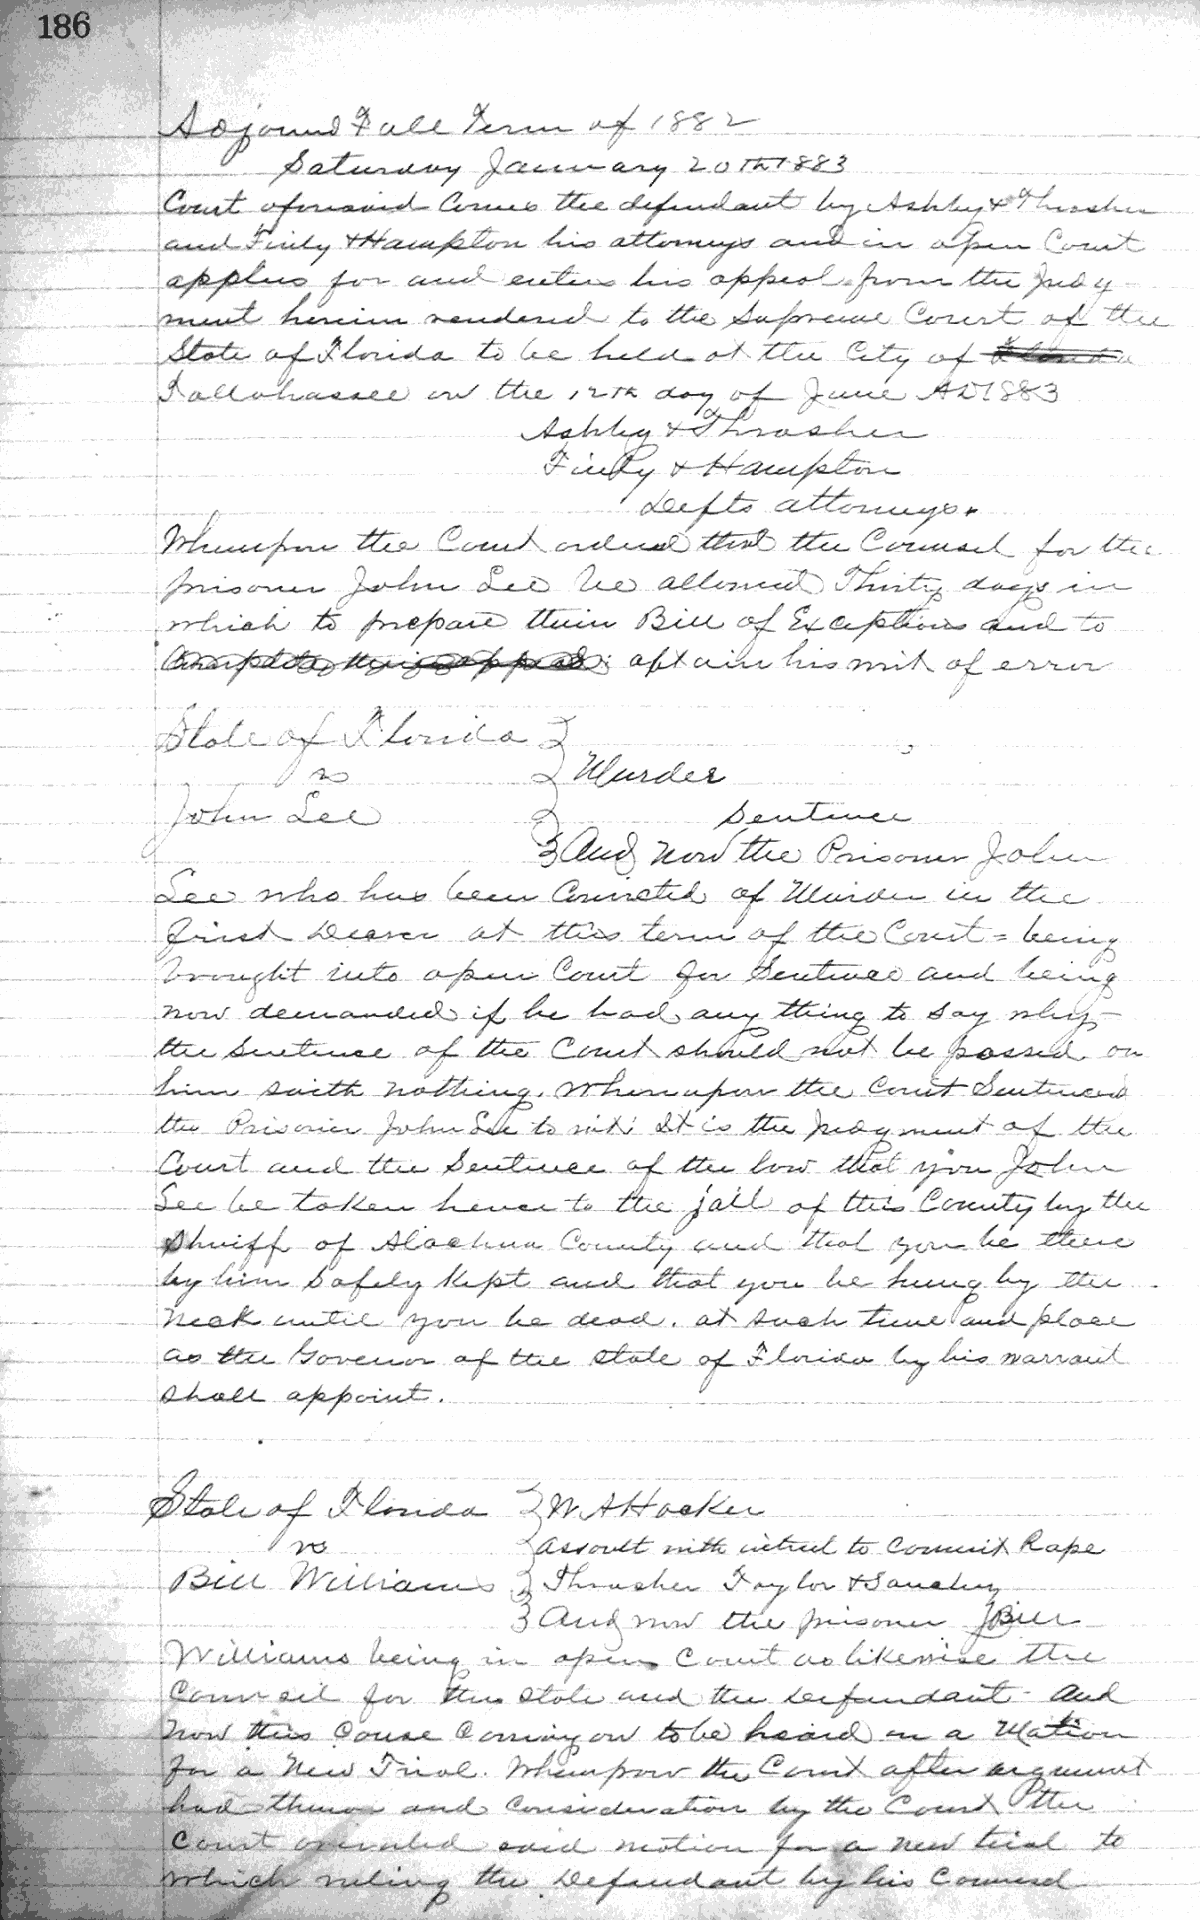 186
Adjourned Fall Term of 1882
Saturday January 20th 1883
Court aforesaid Comes the defendant by Ashby & Thrasher
and Finly & Hampton his attorneys and in open Court
applies for and enters his appeal from the Judg
ment herein rendered to the Supreme Court of the
State of Florida to be held at the City of Florida
Tallahassee on the 12th day of June AD 1883
Ashby & Thrasher
Finly & Hampton
Defts attorneys.
Whereupon the Court ordered that the Counsel for the
prisoner John Lee be allowed Thirty days in
which to prepare their Bill of Exceptions and to
Complete their appeal: obtain his writ of error
State of Florida
vs } Murder
John Lee } Sentence
And now the Prisoner John
Lee who has been Convicted of Murder in the
first Degree at this term of the Court = being
brought into open Court for Sentence and being
now demanded if he had any thing to say why
the Sentence of the Court should not be passed on
him saith nothing. Whereupon the Court Sentenced
the Prisoner John Lee to wit: It is the Judgment of the
Court and the Sentence of the law that you John
Lee be taken hence to the jail of this County by the
Sheriff of Alachua County and that you be there
by him Safely Kept and that you be hung by the
Neck until you be dead. at such time and place
as the Govenor of the State of Florida by his warrant
shall appoint.
State of Florida } W A Hocker
vs } Assault with intent to Commit Rape
Bill Williams } Thrasher Taylor & Sanchez
And now the prisoner Bill
Williams being in open Court as likewise the
Counsel for the State and the Defendant - And
now this Cause Coming on to be heard on a Motion
for a New Trial. Whereupon the Court after argument
had thereon and Consideration by the Court the
Court overruled said motion for a new trial to
which ruling the Defendant by his Counsel